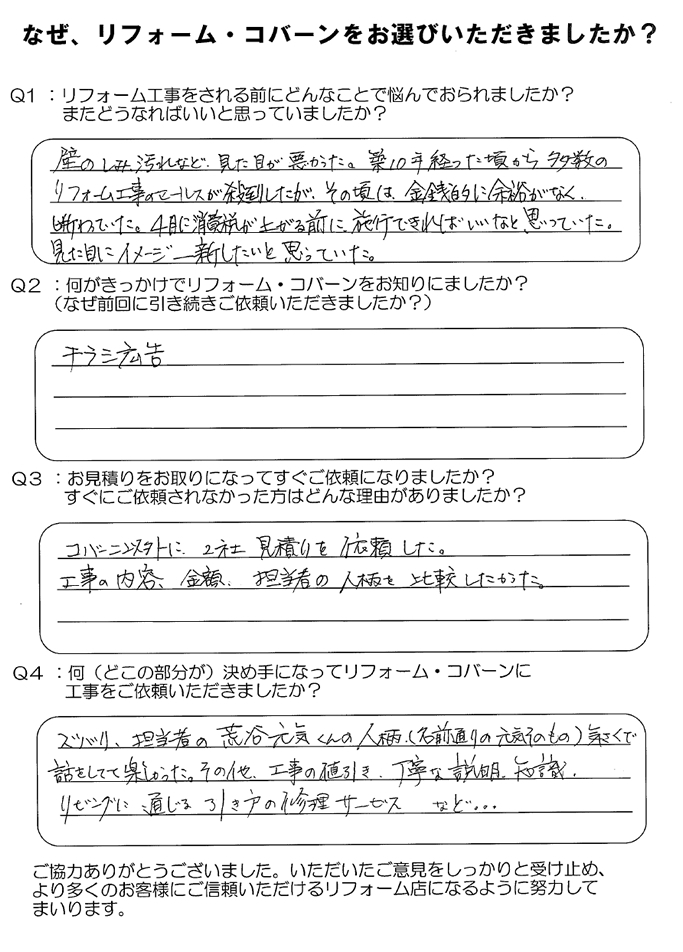 なぜ、リフォーム・コバーンをお選びいただきましたか?
Q1 :リフォーム工事をされる前にどんなことで悩んでおられましたか?
またどうなればいいと思っていましたか?
壁のしみ汚れなど、見た目が悪かった。築10年経った頃から多数の
リフォーム工事のセールスが殺到したが、その頃は、金銭的に余裕がなく、
断わっていた。4月に消費税が上がる前に施行できればいいなと思っていた。
見た目にイメージ一新したいと思っていた。
Q2 :何がきっかけでリフォーム・コバーンをお知りにましたか?
(なぜ前回に引き続きご依頼いただきましたか?)
チラシ広告
Q3 :お見積りをお取りになってすぐご依頼になりましたか?
すぐにご依頼されなかった方はどんな理由がありましたか?
コバーン以外に、2社 見積りを依頼した。
工事の内容、金額、担当者の人柄を比較したかった。
Q4 :何(どこの部分が)決め手になってリフォーム・コバーンに
工事をご依頼いただきましたか?
ズバリ、担当者の荒谷元気くんの人柄。(名前通りの元気そのもの)気さくで
話をしてて楽しかった。その他、工事の値引き、丁寧な説明、知識、
リビングに通じる引き戸の修理サービス など...
ご協力ありがとうございました。いただいたご意見をしっかりと受け止め、
より多くのお客様にご信頼いただけるリフォーム店になるように努力して
まいります。